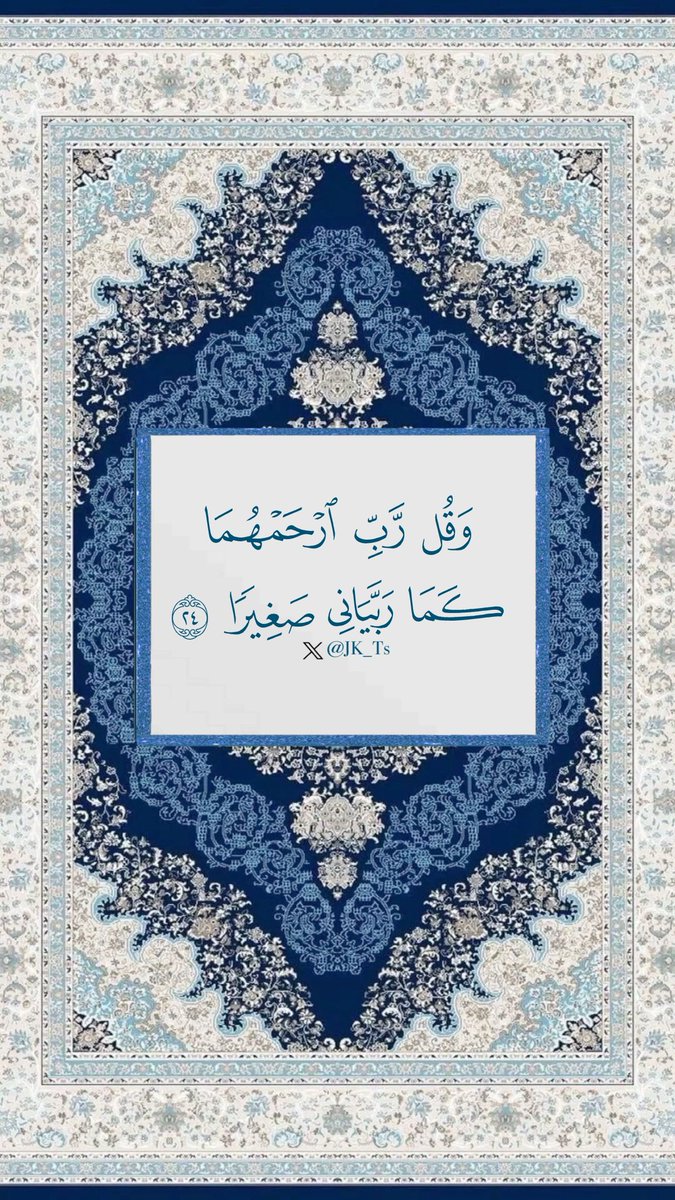 وَقُل رَّبِّ ٱرْحَمْهُمَا
كَمَا رَبَّيَانِى صَغِيرًا ٢٤
X @JK_Ts